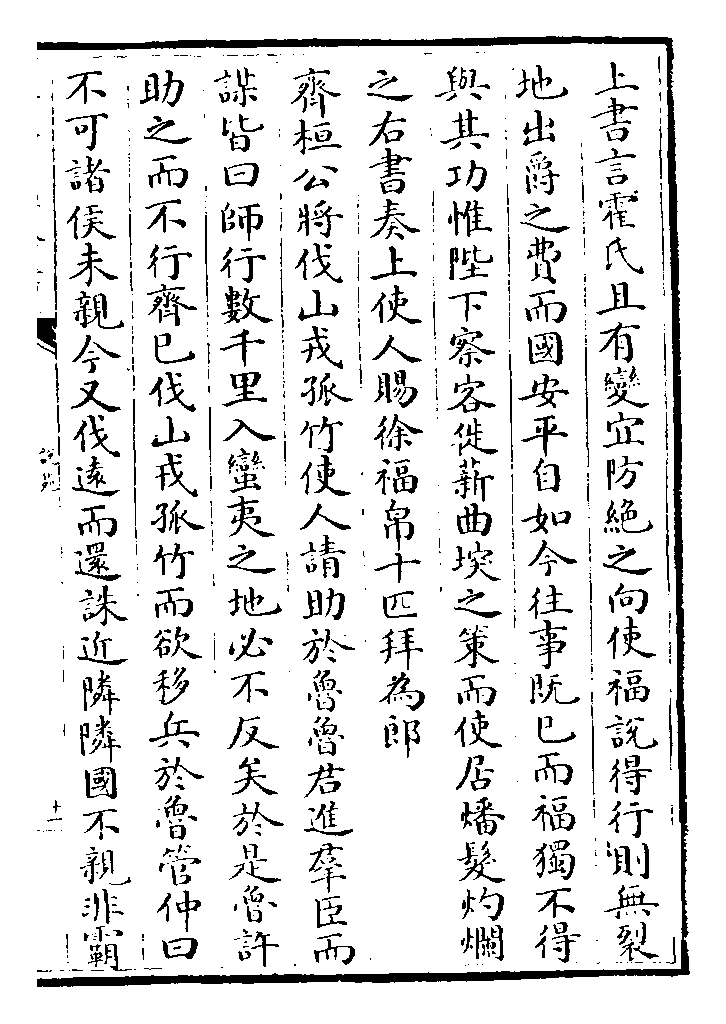 上書言霍氏且有變宜防絶之向使福說得行則無裂
地出爵之費而國安平自如今往事既已而福獨不得
與其功惟陛下察客徙薪曲堗之策而使居燔髮灼爛
之右書奏上使人賜徐福帛十匹拜為郎
齊桓公將伐山戎孤竹使人請助於魯魯君進羣臣而
謀皆曰師行數千里入蠻夷之地必不反矣於是魯許
助之而不行齊已伐山戎孤竹而欲移兵於魯管仲曰
不可諸侯未親今又伐遠而還誅近隣隣國不親非霸
說苑
十一